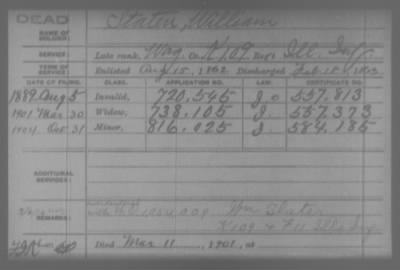 DEAD
NAME OF SOLDIER: Staten, William
SERVICE: Late rank, Wag. Co. K, 109 Reg't Ill. Inf.
TERM OF SERVICE: Enlisted Aug 15, 1862 Discharged Feb 1863
DATE OF FILING. CLASS. APPLICATION NO. LAW. CERTIFICATE NO.
1889 Aug 5 Invalid, 720,545 J. 557,813
1901 Mar 30 Widow, 738,105 J. 557,373
1904 Oct 31 Minor, 816,025 J. 584,185
ADDITIONAL SERVICES:
REMARKS: Wm Slater
K 109 & F 11 Ills Inf
Died Mar 11, 1901, at